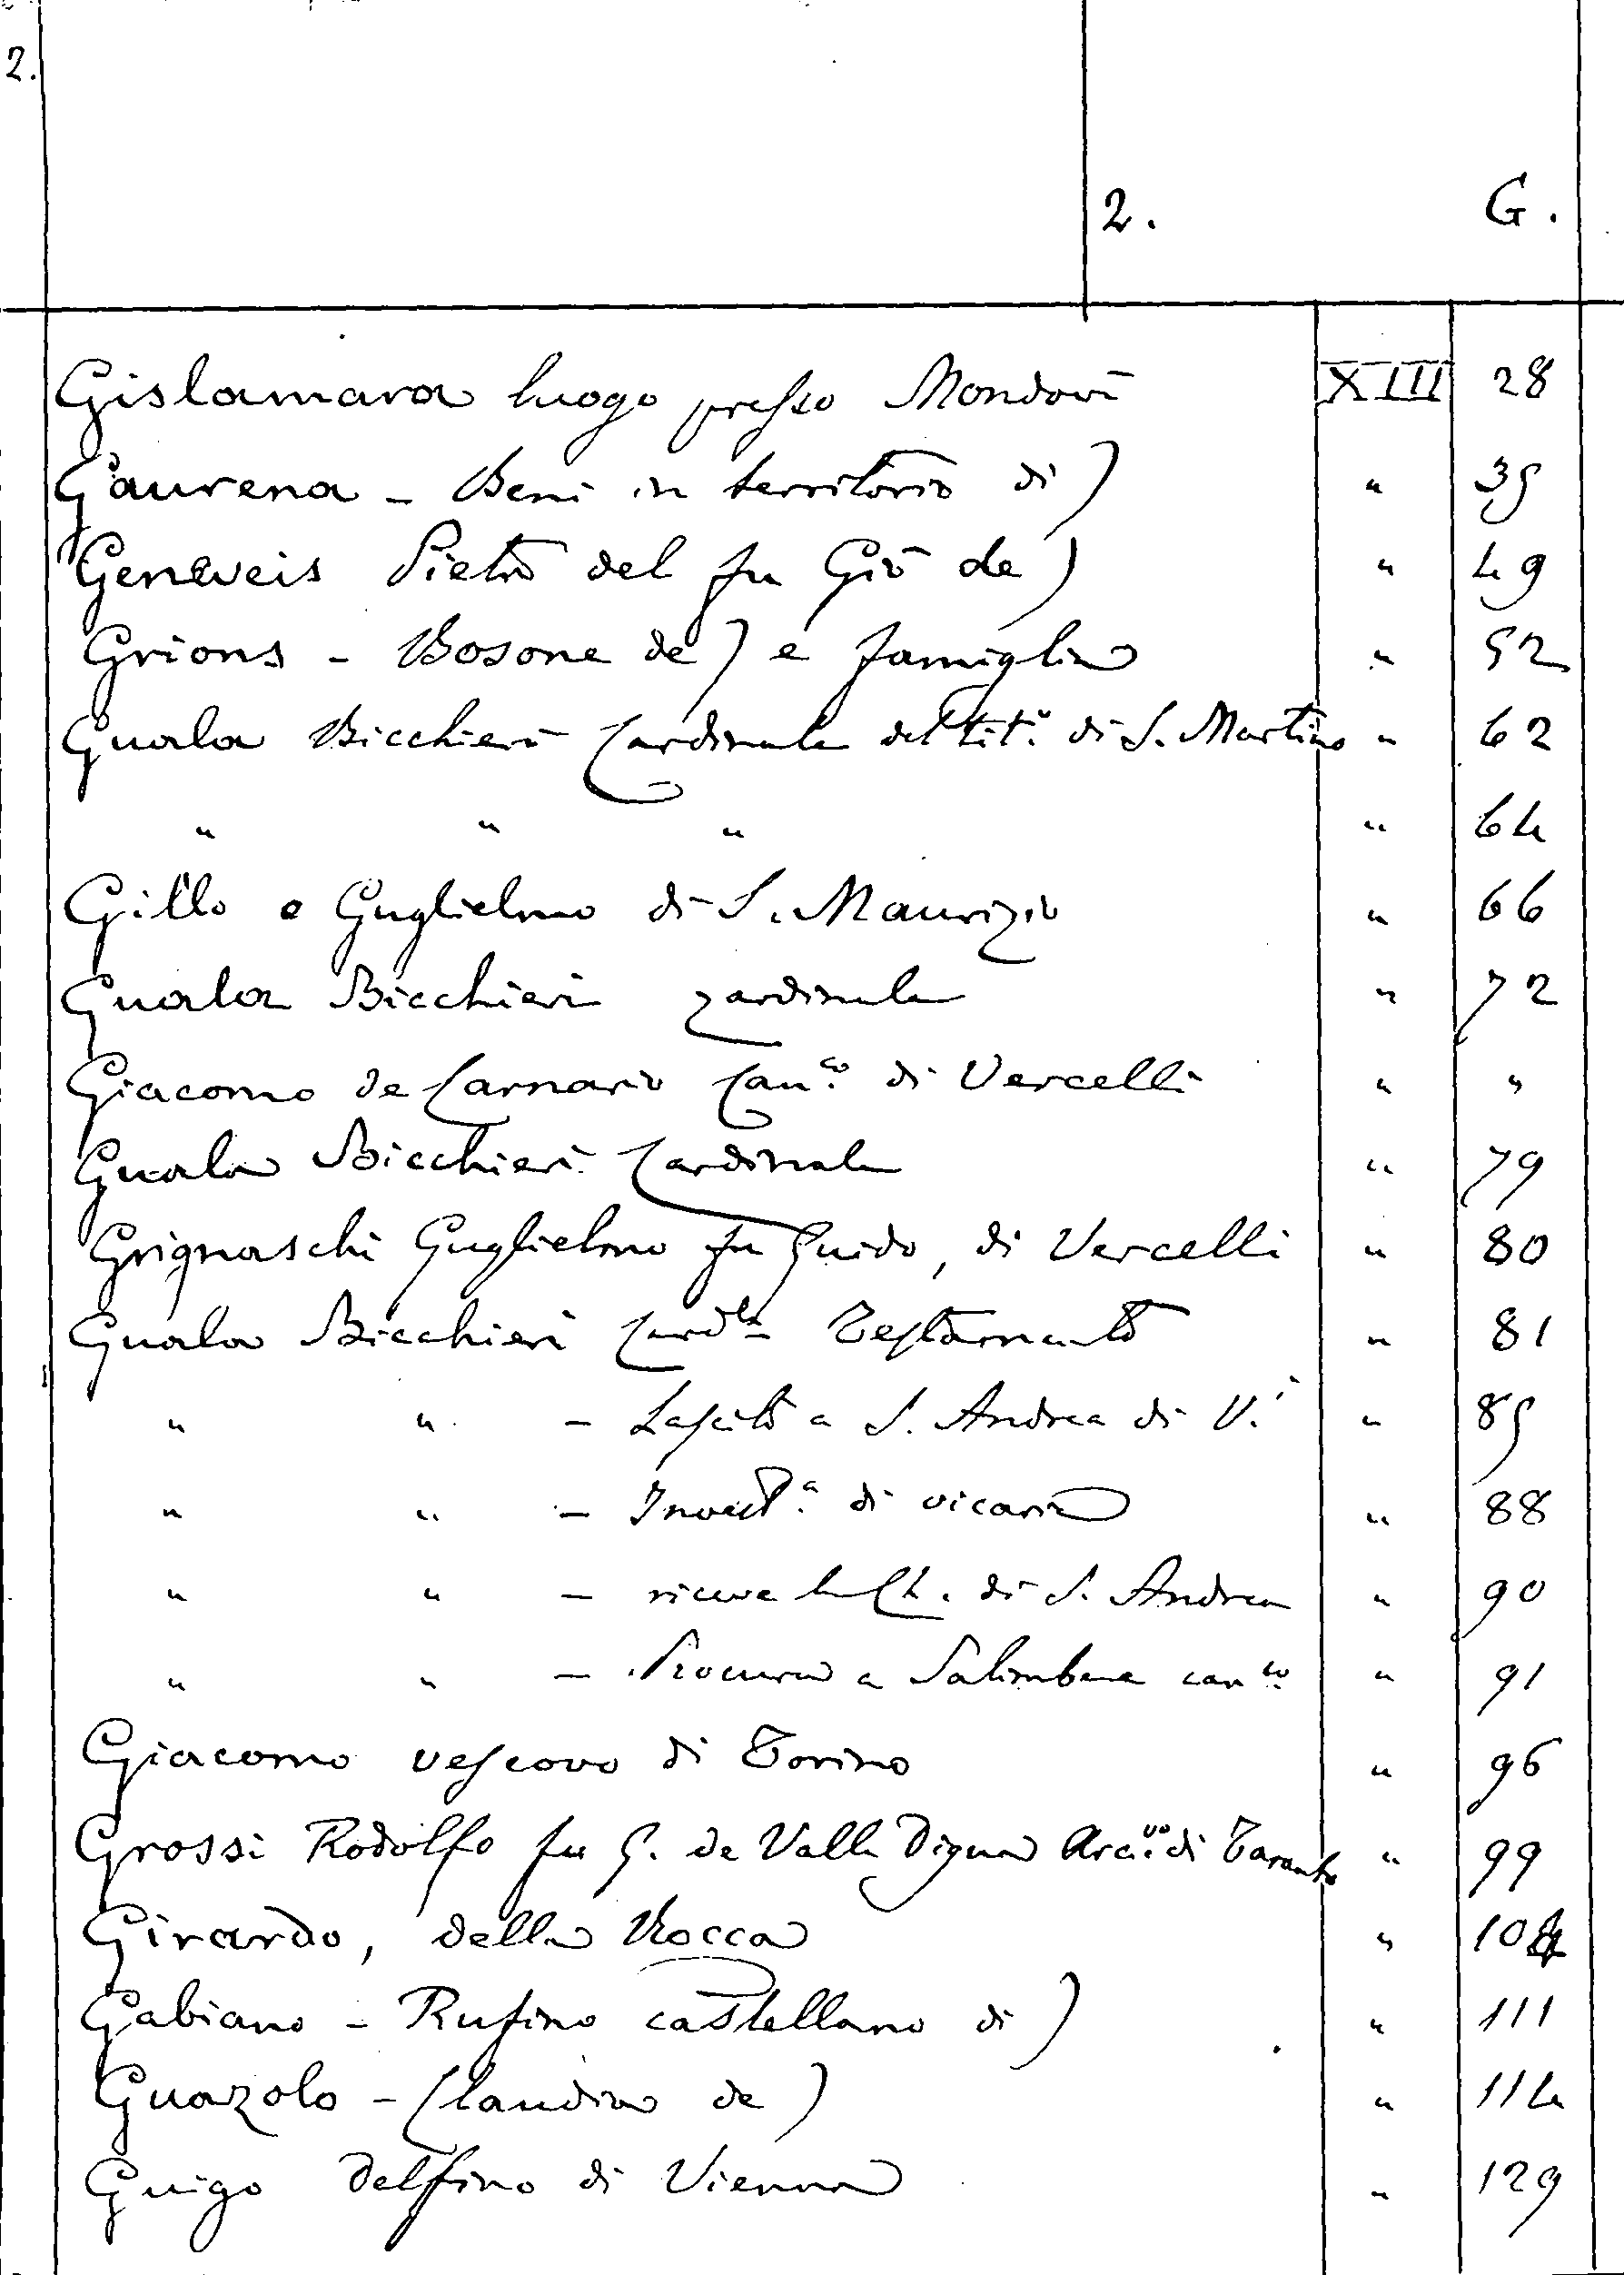 2.
2. G.
Gislamara luogo presso Mondovì XIII 28
Gaurena - Beni in territorio di) " 35
Geneveis Pietro del fu Giō de) " 49
Grions - Bosone de) e famiglia " 52
Guala Bicchieri Cardinale del tit.º di S. Martino " 62
" " " " 64
Gillo e Guglielmo di S. Maurizio " 66
Guala Bicchieri cardinale " 72
Giacomo de Carnario Can.co di Vercelli " "
Guala Bicchieri Cardinale " 79
Grignaschi Guglielmo fu Guido, di Vercelli " 80
Guala Bicchieri Card.le Testamento " 81
" " - Lascito a S. Andrea di V.i " 85
" " - Invest.a di vicaria " 88
" " - riceve la Ch. di S. Andrea " 90
" " - Procura a Salimbene can.co " 91
Giacomo vescovo di Torino " 96
Grossi Rodolfo fu G. de Valle Digna Arc.vo di Taranto " 99
Girardo, della Rocca " 104
Gabiano - Rufino castellano di) " 111
Guazolo - Claudina de) " 114
Guigo Delfino di Vienna " 129